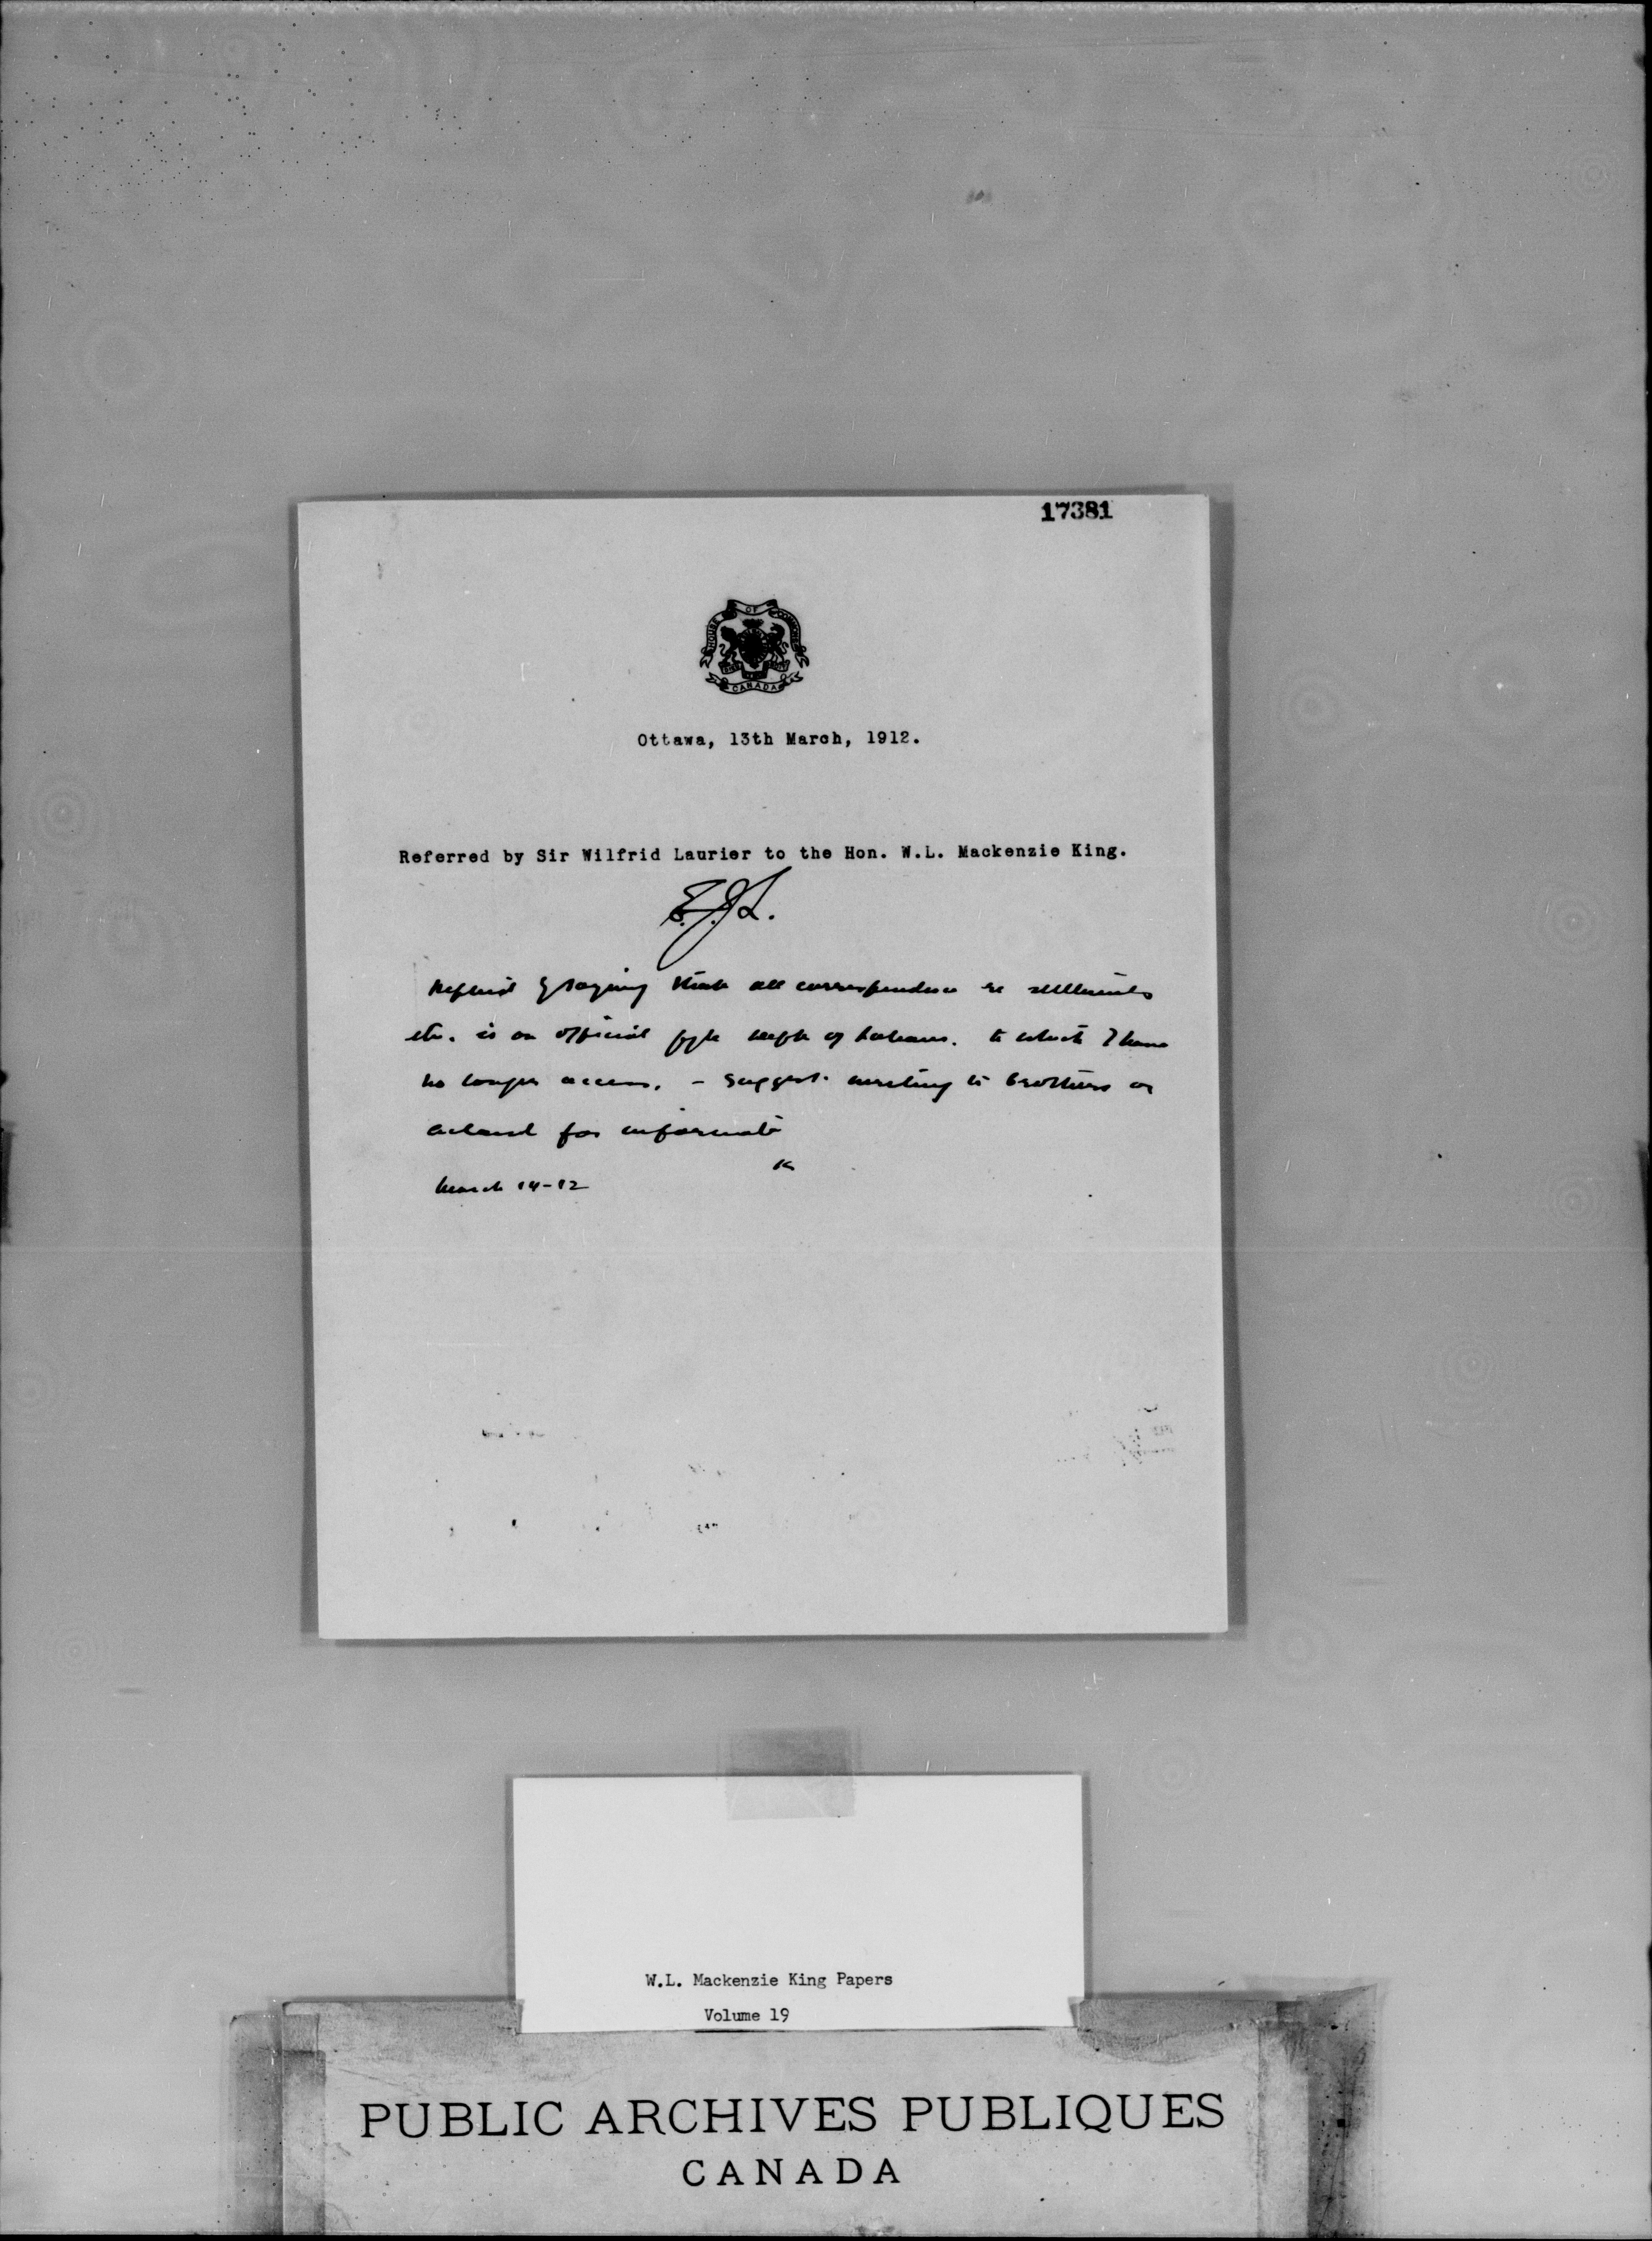 17381
HOUSE OF COMMONS
CANADA
Ottawa, 13th March, 1912.
Referred by Sir Wilfrid Laurier to the Hon. W.L. Mackenzie King.
E.J.L.
Replied saying that all correspondence re settlements
etc. is on official fyle dept of Labour. to which I have
no longer access. - Suggest writing to brothers or
Acland for informati
K
March 14-12
W.L. Mackenzie King Papers
Volume 19
PUBLIC ARCHIVES PUBLIQUES
CANADA